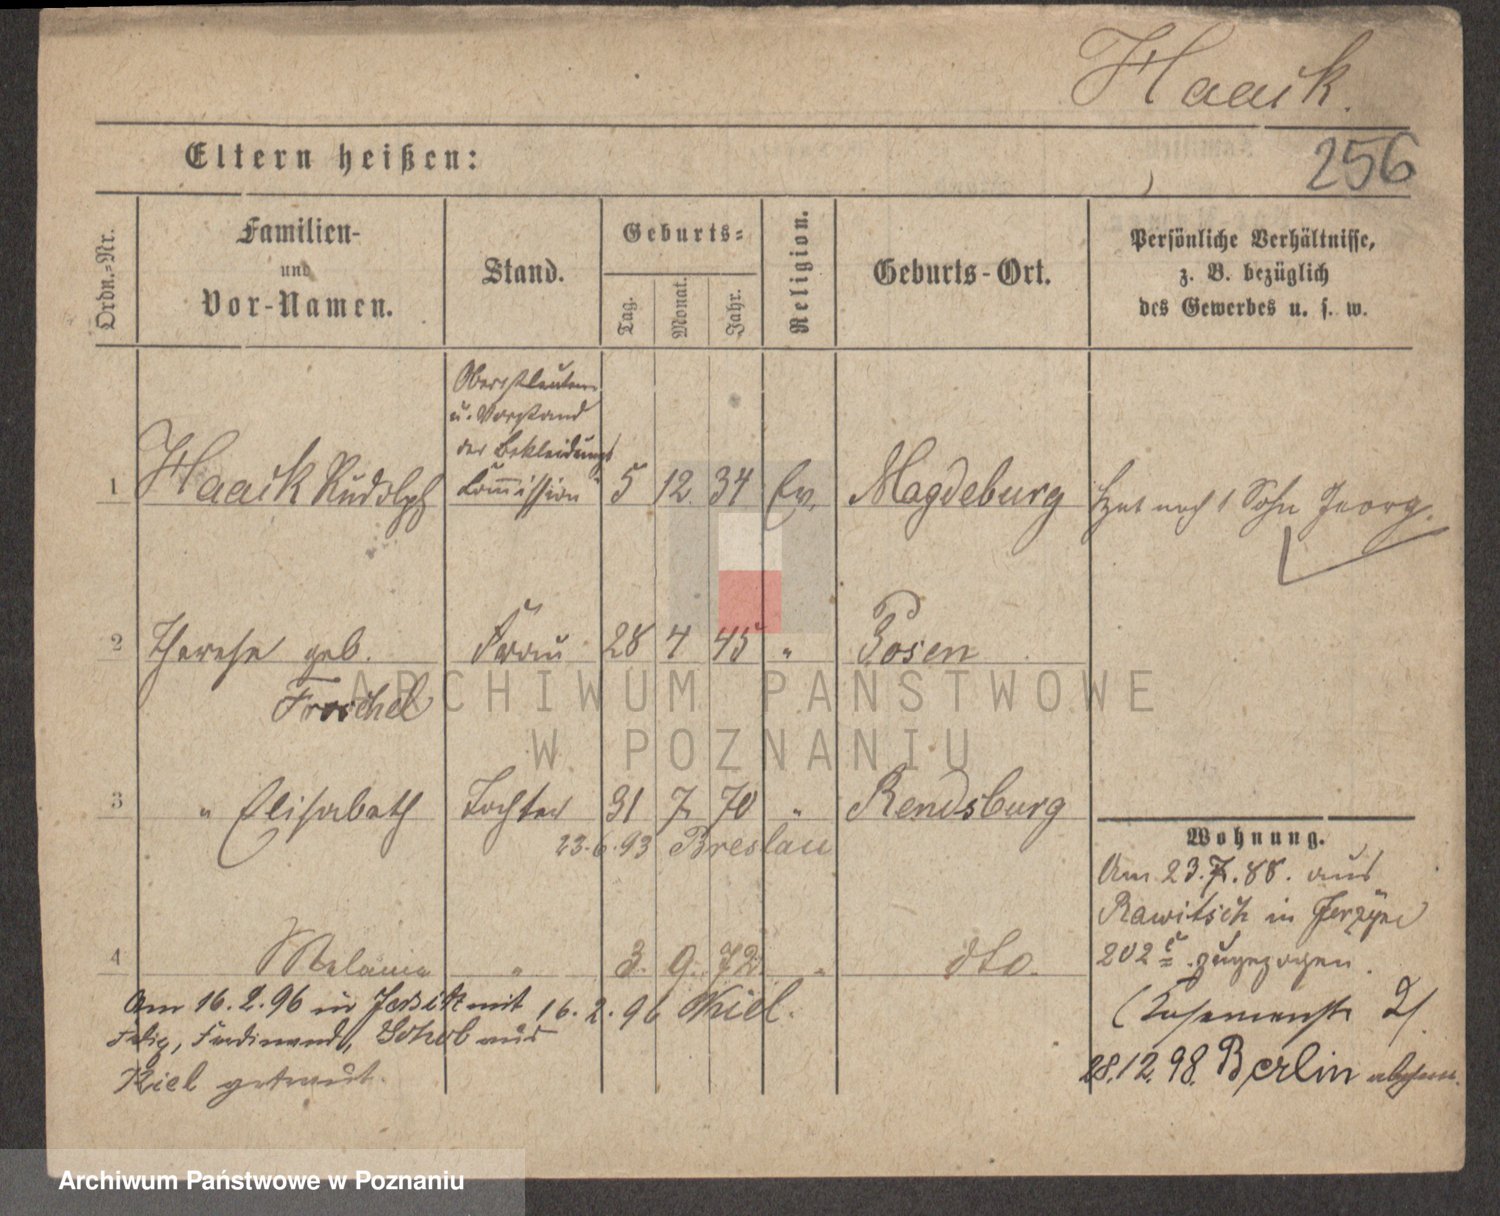 Haack.
256
Eltern heißen:
Ordn.-Nr.
Familien-
und
Vor-Namen.
Stand.
Geburts-
Tag.
Monat.
Jahr.
Religion.
Geburts-Ort.
Persönliche Verhältnisse,
z. B. bezüglich
des Gewerbes u. s. w.
Oberstleutn.
u. Vorstand
der Bekleidungs-
1 Haack Rudolph Commission 5 12 34 Ev. Magdeburg Hat noch 1 Sohn Georg.
2 Therese geb. Frau 28 4 45 " Posen
Froschel
ARCHIWUM PAŃSTWOWE
W POZNANIU
3 " Elisabeth Tochter 31 7 70 " Rendsburg
23.6.93 Breslau
Wohnung.
Am 23.7.88. aus
Rawitsch in
202 c zugezogen.
4 Melanie " 3. 9. 72 " dto.
Am 16.2.96 in Jersitz mit 16.2.96 Kiel.
Felix, Ferdinand, aus
Kiel getraut.
28.12.98. Berlin
Archiwum Państwowe w Poznaniu